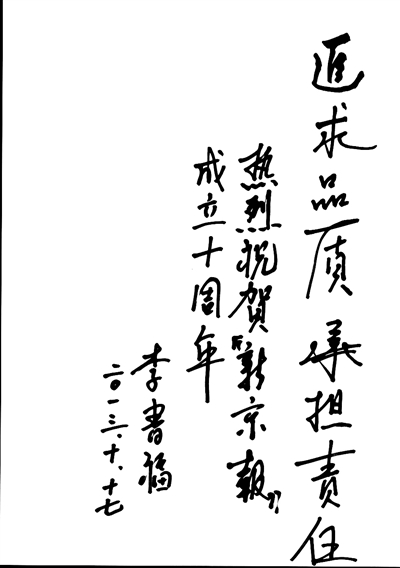 追求品质 承担责任
热烈祝贺《新京報》
成立十周年
李書福
二〇一三.十.十七